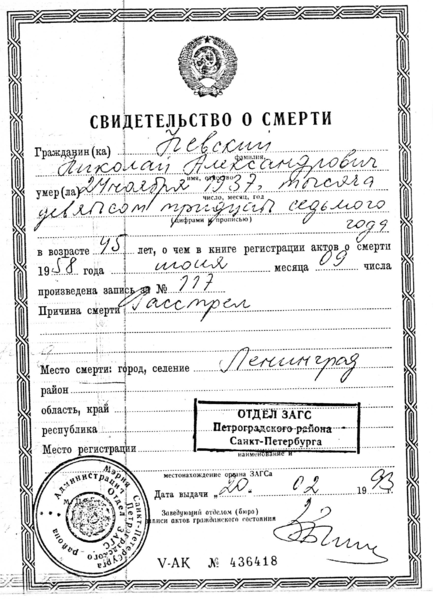 СВИДЕТЕЛЬСТВО О СМЕРТИ
Гражданин(ка) Невский
фамилия
Николай Александрович
имя, отчество
умер(ла) 24 ноября 1937, тысяча
число, месяц, год
девятьсот тридцать седьмого
(цифрами и прописью)
года
в возрасте 45 лет, о чем в книге регистрации актов о смерти
1958 года июня месяца 09 числа
произведена запись за № 117
Причина смерти Расстрел
Место смерти: город, селение Ленинград
район
область, край
республика
Место регистрации
ОТДЕЛ ЗАГС
Петроградского района
Санкт-Петербурга
наименование и
местонахождение органа ЗАГСа
Дата выдачи 20. 02 1993
Заведующий отделом (бюро)
записи актов гражданского состояния
Мэрия Санкт-Петербурга
Администрация Петроградского района
Отдел ЗАГС
V-АК № 436418